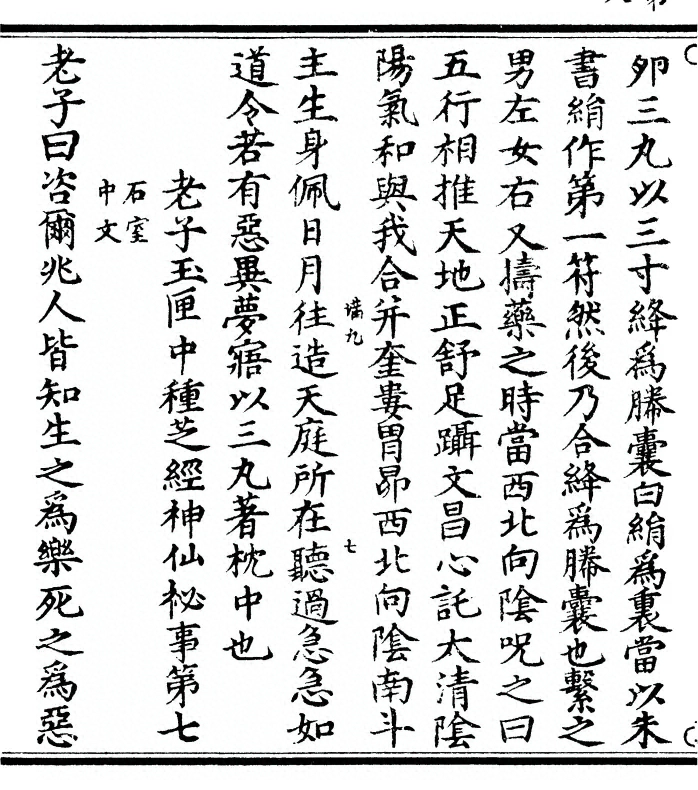 卵三丸以三寸絳爲縢囊白絹爲裏當以朱
書絹作第一符然後乃合絳爲縢囊也繫之
男左女右又擣藥之時當西北向陰呪之曰
五行相推天地正舒足躡文昌心託太清陰
陽氣和與我合幷奎婁胃昴西北向陰南斗
主生身佩日月往造天庭所在聽過急急如
墉九
七
道令若有惡異夢寤以三丸著枕中也
老子玉匣中種芝經神仙祕事第七
石室
中文
老子曰咨爾兆人皆知生之爲樂死之爲惡